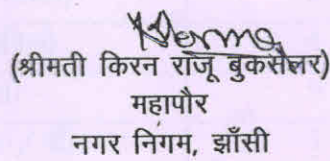 (श्रीमती किरन राजू बुकसेलर)
महापौर
नगर निगम, झाँसी